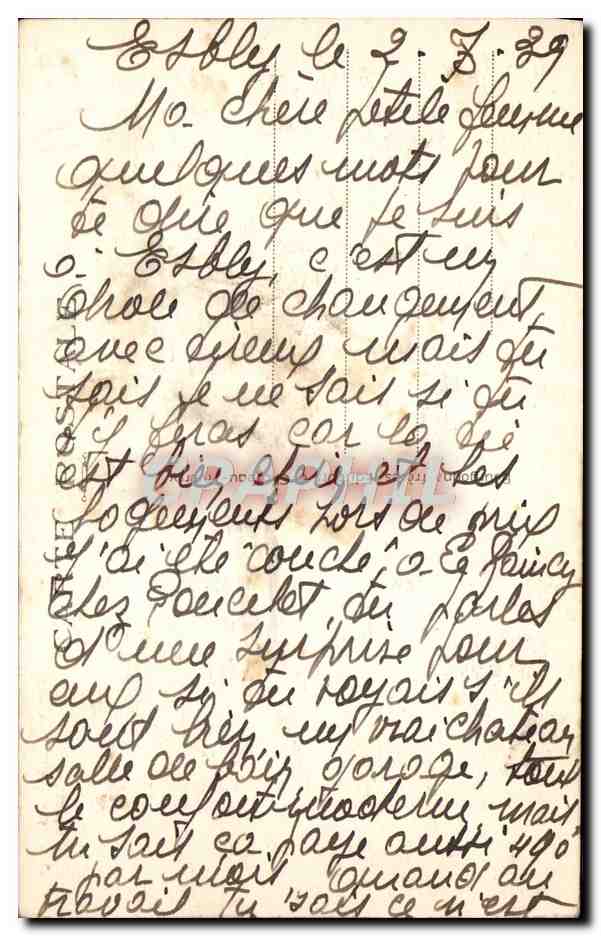 Esbly le 2.7.39
Ma chère petite femme
quelques mots pour
te dire que je suis
a Esbly, c'est un
drole de changement,
avec mieux mais tu
sais je ne sais si tu
t'y feras car la vie
est bien chère, et les
logements hors de prix
J'ai été couché, a Raincy
chez Poncelet, tu parles
d'une surprise pour
eux si tu voyais s'ils
sont bien un vrai chateau
salle de bain garage, tout
le confort moderne mais
tu sais ça paye aussi 490
par mois Quand au
travail tu sais ce n'est
CARTE POSTALE
DELPHIL